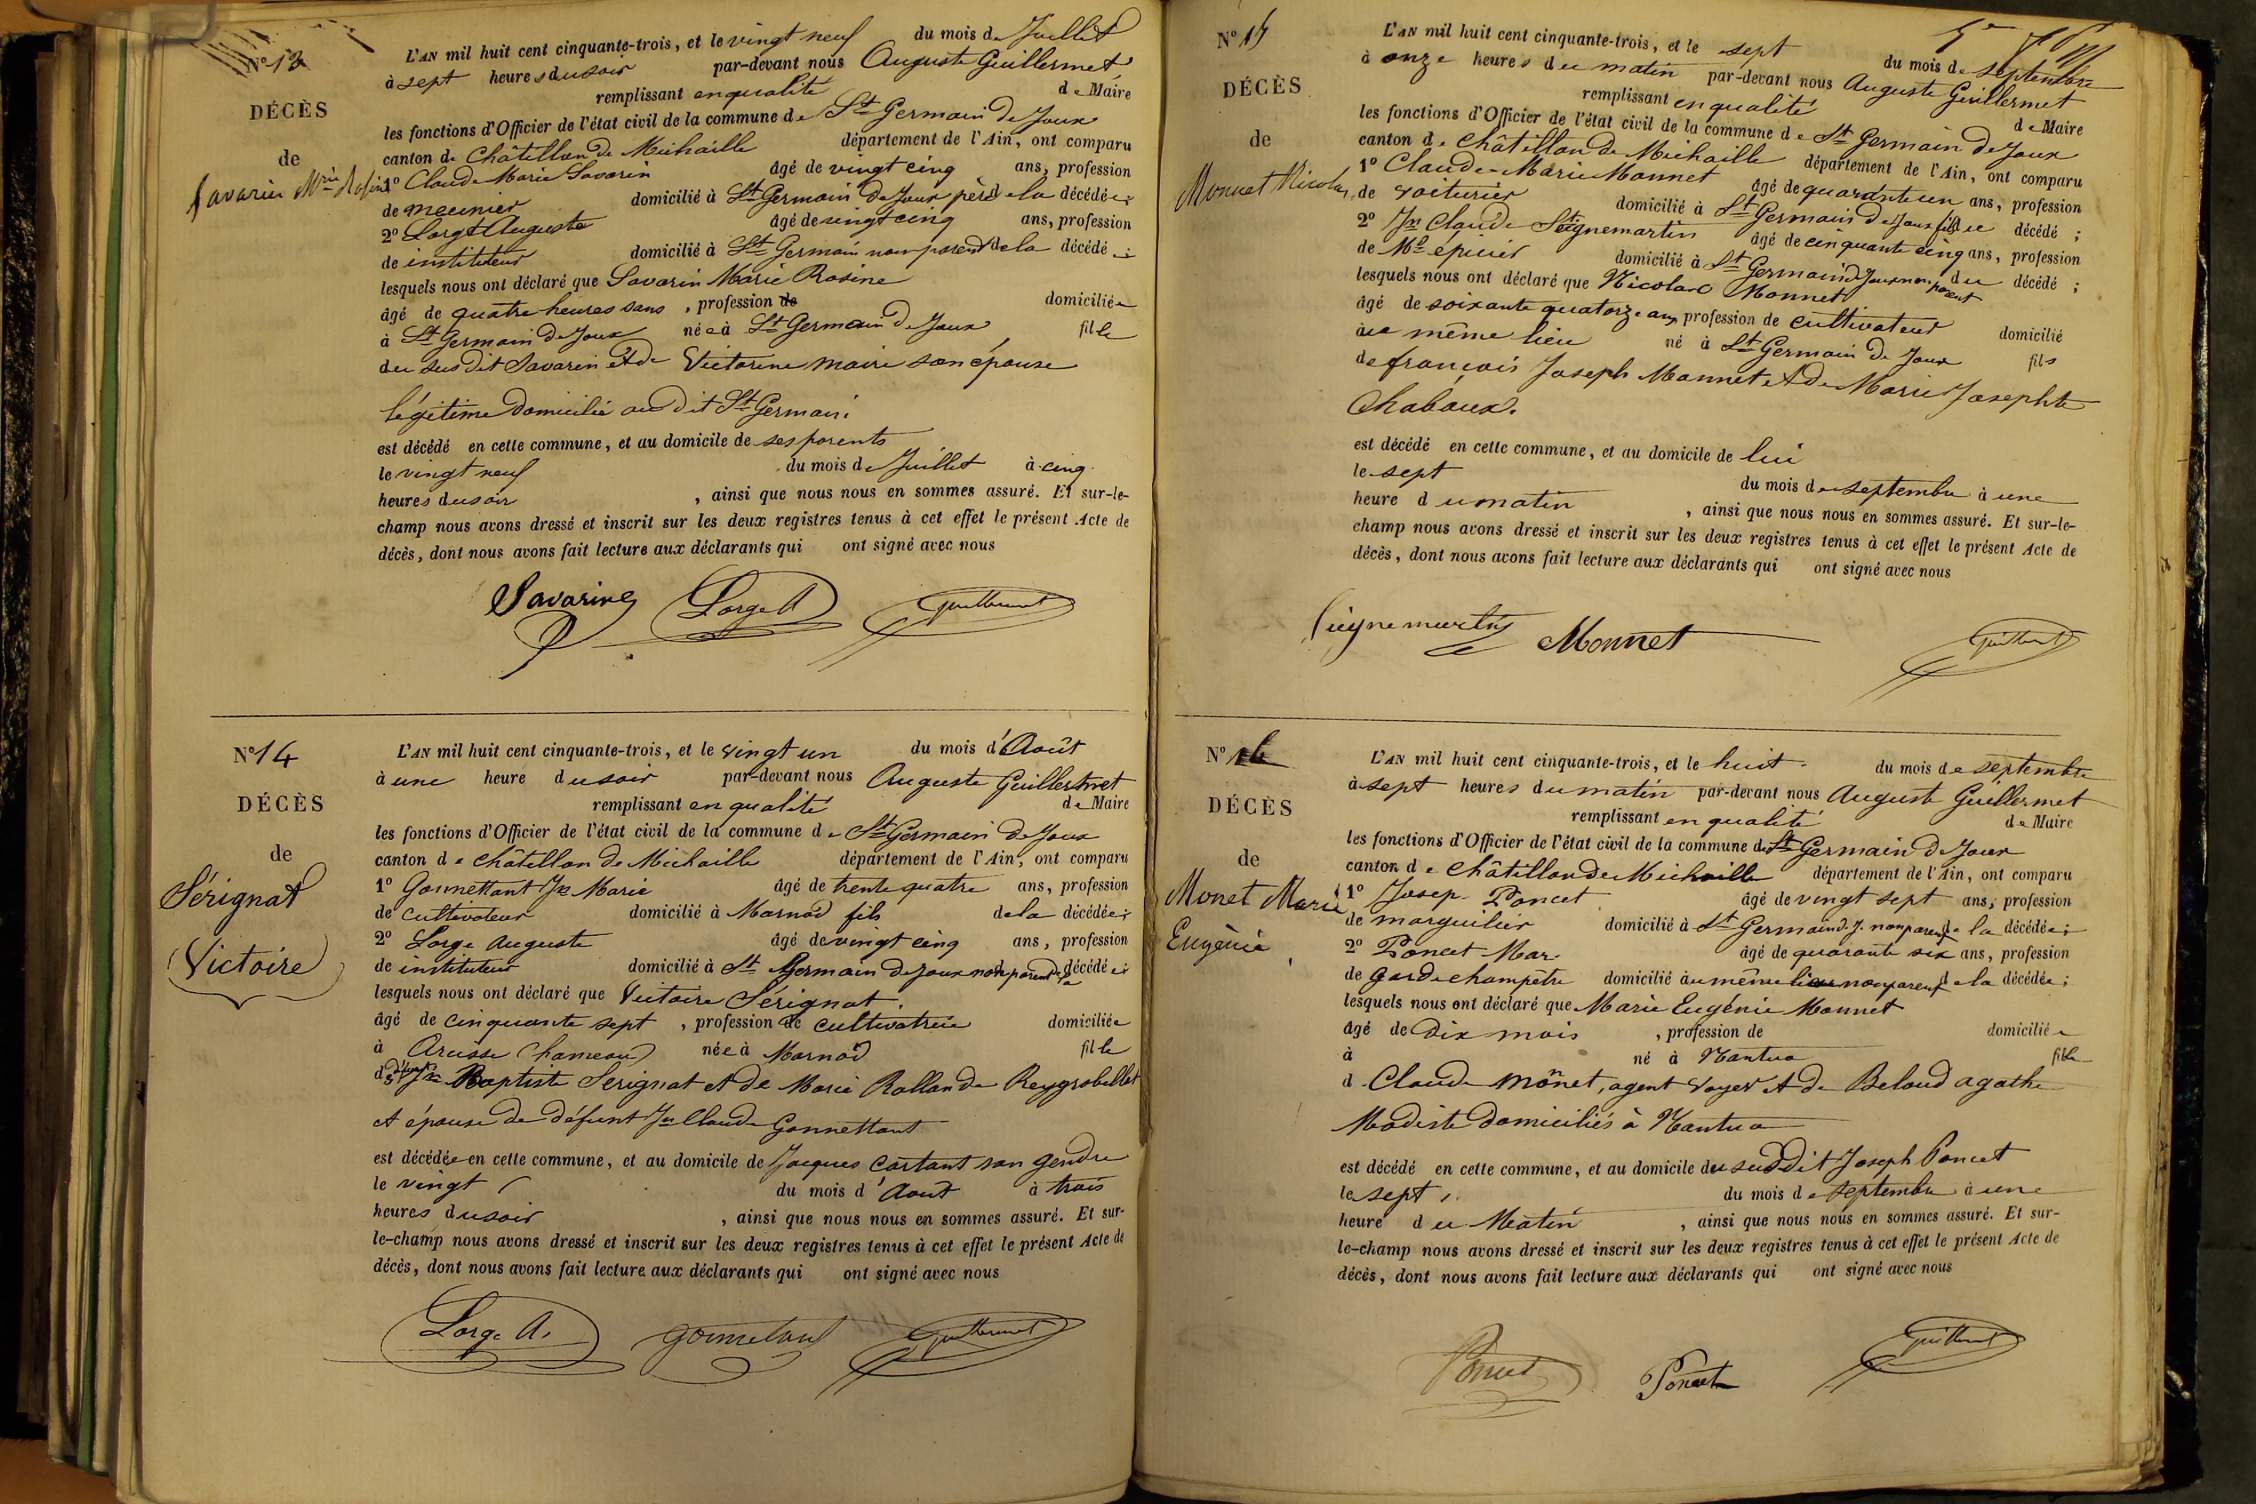 N° 13
DÉCÈS
de
Savarin Mie Rosine
L'AN mil huit cent cinquante-trois, et le vingt neuf du mois de Juillet
à sept heures du soir par-devant nous Auguste Guillermet
remplissant en qualité de Maire
les fonctions d'Officier de l'état civil de la commune de St Germain de Joux
canton de Châtillon de Michaille département de l'Ain, ont comparu
1° Claude Marie Savarin âgé de vingt cinq ans, profession
de meunier domicilié à St Germain de Joux père de la décédée ;
2° Lorge Auguste âgé de vingt cinq ans, profession
de instituteur domicilié à St Germain non parent de la décédée ;
lesquels nous ont déclaré que Savarin Marie Rosine
âgé de quatre heures sans , profession de domiciliée
à St Germain de Joux née à St Germain de Joux fille
du susdit Savarin et de Victorine Maire son épouse
légitime domicilié au dit St Germain
est décédé en cette commune, et au domicile de ses parents
le vingt neuf du mois de Juillet à cinq
heures du soir , ainsi que nous nous en sommes assuré. Et sur-le-
champ nous avons dressé et inscrit sur les deux registres tenus à cet effet le présent Acte de
décès, dont nous avons fait lecture aux déclarants qui ont signé avec nous
Savarin Lorge A Guillermet
N° 14
DÉCÈS
de
Sérignat
Victoire
L'AN mil huit cent cinquante-trois, et le vingt un du mois d'Août
à une heure du soir par-devant nous Auguste Guillermet
remplissant en qualité de Maire
les fonctions d'Officier de l'état civil de la commune de St Germain de Joux
canton de Châtillon de Michaille département de l'Ain, ont comparu
1° Gonnettant Jn Marie âgé de trente quatre ans, profession
de cultivateur domicilié à Marnod fils de la décédée ;
2° Lorge Auguste âgé de vingt cinq ans, profession
de instituteur domicilié à St Germain de Joux non parent de la décédée ;
lesquels nous ont déclaré que Victoire Sérignat.
âgé de cinquante sept , profession de cultivatrice domiciliée
à (hameau) née à Marnod fille
de Jn Baptiste Serignat et de Marie Rolland Reygrobellet
et épouse de défunt Jn Claude Gonnettant
est décédée en cette commune, et au domicile de Jacques Cartant son gendre
le vingt du mois d'Août à trois
heures du soir , ainsi que nous nous en sommes assuré. Et sur-
le-champ nous avons dressé et inscrit sur les deux registres tenus à cet effet le présent Acte de
décès, dont nous avons fait lecture aux déclarants qui ont signé avec nous
Lorge A. Gonnettant Guillermet
N° 15
DÉCÈS
de
Monnet Nicolas
L'AN mil huit cent cinquante-trois, et le sept du mois de septembre
à onze heures du matin par-devant nous Auguste Guillermet
remplissant en qualité de Maire
les fonctions d'Officier de l'état civil de la commune de St Germain de Joux
canton de Châtillon de Michaille département de l'Ain, ont comparu
1° Claude-Marie Monnet âgé de quarante un ans, profession
de voiturier domicilié à St Germain de Joux fils du décédé ;
2° Jn Claude Seignemartin âgé de cinquante cinq ans, profession
de Md épicier domicilié à St Germain de Joux non parent du décédé ;
lesquels nous ont déclaré que Nicolas Monnet
âgé de soixante quatorze ans, profession de cultivateur domicilié
au même lieu né à St Germain de Joux fils
de françois Joseph Monnet et de Marie Josephte
Chabaux.
est décédé en cette commune, et au domicile de lui
le sept du mois de septembre à une
heure du matin , ainsi que nous nous en sommes assuré. Et sur-le-
champ nous avons dressé et inscrit sur les deux registres tenus à cet effet le présent Acte de
décès, dont nous avons fait lecture aux déclarants qui ont signé avec nous
Seignemartin Monnet Guillermet
N° 16
DÉCÈS
de
Monet Marie
Eugénie
L'AN mil huit cent cinquante-trois, et le huit du mois de septembre
à sept heures du matin par-devant nous Auguste Guillermet
remplissant en qualité de Maire
les fonctions d'Officier de l'état civil de la commune de St Germain de Joux
canton de Châtillon de Michaille département de l'Ain, ont comparu
1° Josep Poncet âgé de vingt sept ans, profession
de marguilier domicilié à St Germain d. J. non parent de la décédée ;
2° Poncet Mar. âgé de quarante six ans, profession
de garde champêtre domicilié au même lieu non parent de la décédée ;
lesquels nous ont déclaré que Marie Eugénie Monnet
âgé de Dix mois , profession de domiciliée
à né à Nantua fille
d Claude Monnet, agent voyer et de Beloud agathe
Modiste domiciliés à Nantua
est décédé en cette commune, et au domicile du susdit Joseph Poncet
le sept, du mois de septembre à une
heure du Matin , ainsi que nous nous en sommes assuré. Et sur-
le-champ nous avons dressé et inscrit sur les deux registres tenus à cet effet le présent Acte de
décès, dont nous avons fait lecture aux déclarants qui ont signé avec nous
Poncet Poncet Guillermet